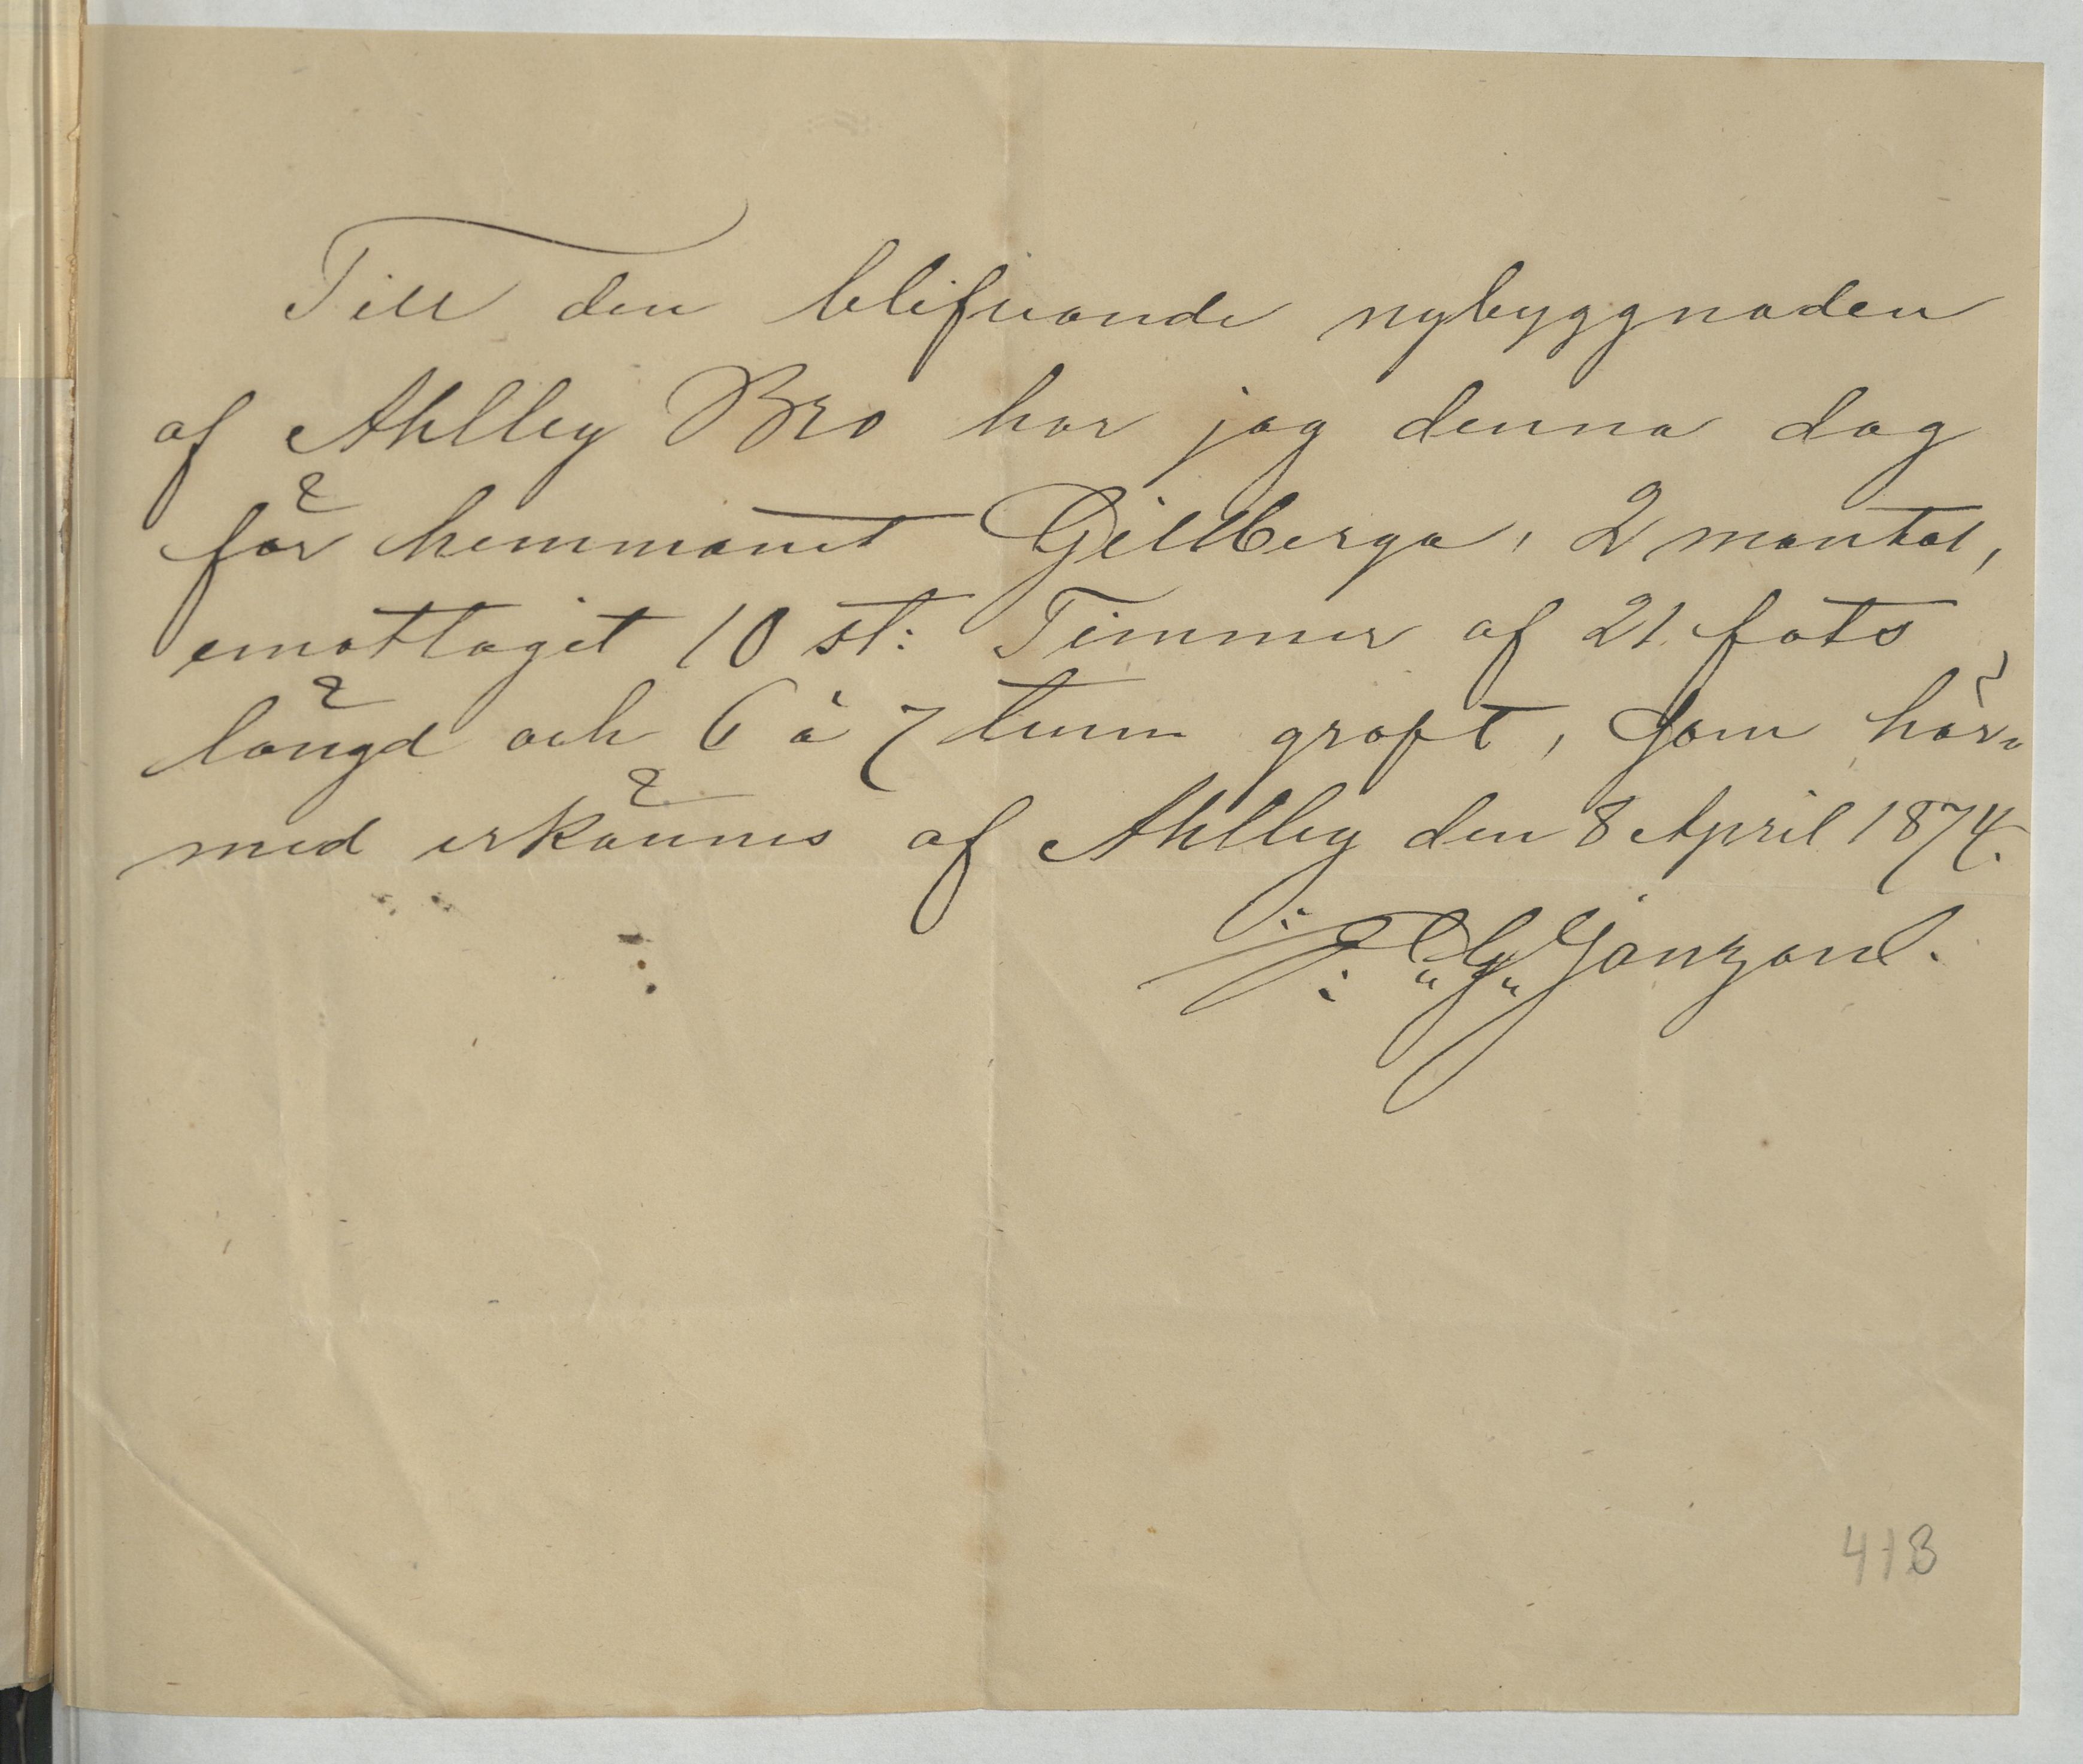 Till den blifvande nybyggnaden
af Ahlby Bro har jag denna dag
för hemmanet Gillberga, 2 mantal,
emottagit 10 st: Timmer af 21 fots
längd och 6 à 7 tum groft, som här„
med erkännes af Ahlby den 8 April 1874.
G„ Janzon.
418